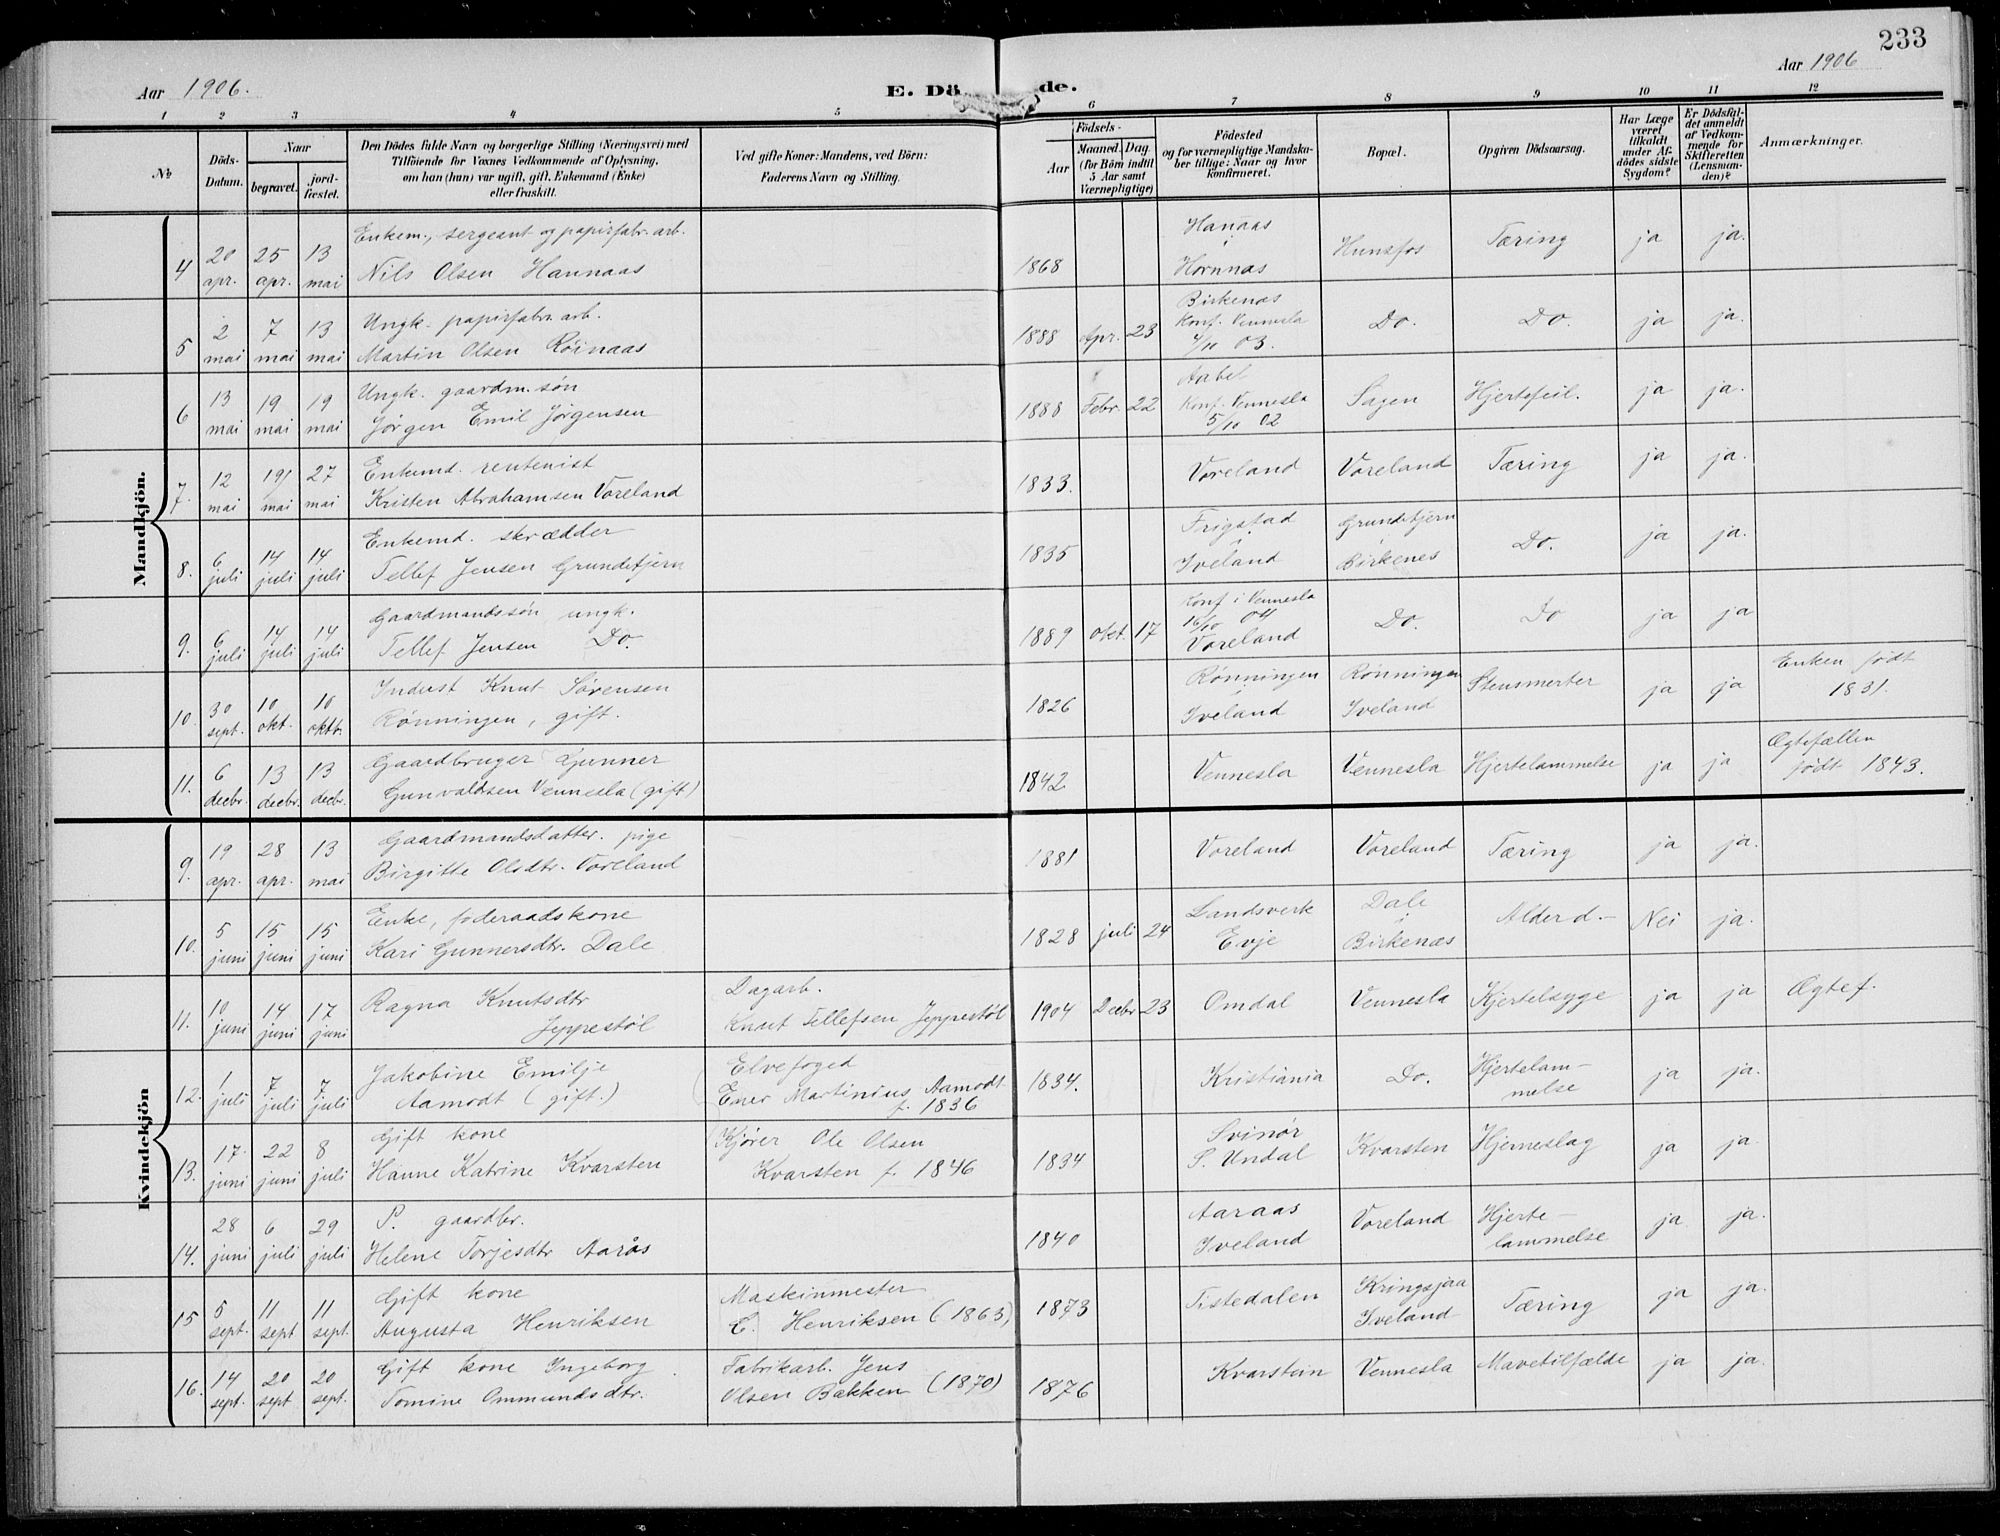 233
Aar 1906.
E. Dö
de.
Aar 1906
1 2 3 4 5 6 7 8 9 10 11 12
№
Döds-Datum.
Naar
begravet.
jordfæstet.
Den Dödes fulde Navn og borgerlige Stilling (Næringsvei) med Tilföiende for Voxnes Vedkommende af Oplysning, om han (hun) var ugift, gift, Enkemand (Enke) eller fraskilt.
Ved gifte Koner: Mandens, ved Börn: Faderens Navn og Stilling.
Födsels-
Aar
Maaned. Dag. (for Börn indtil 5 Aar samt Værnepligtige)
Födested og for værnepligtige Mandskaber tillige: Naar og hvor konfirmeret.
Bopæl.
Opgiven Dödsaarsag.
Har Læge været tilkaldt under Afdödes sidste Sygdom?
Er Dödsfaldet anmeldt af Vedkommende for Skifteretten (Lensmanden)?
Anmærkninger.
Mandkjön.
4 20 apr. 25 apr. 13 mai Enkem., sergeant og papirfabr. arb. Nils Olsen Hannaas 1868 Hanaas i Hornnas Hunsfos Tæring ja ja.
5 2 mai 7 mai 13 mai Ungk. papirfabr. arb. Martin Olsen Röinaas 1888 Apr. 23 Birkenæs Konf. Vennesla 4/10 03. Do. Do. ja ja.
6 13 mai 19 mai 19 mai Ungk. gaardm. søn Jørgen Emil Jørgensen 1888 Febr. 22 Aabel Konf. Vennesla 5/10 02 Sagen Hjertefeil. ja ja.
7. 12 mai 19 mai 27 mai Enkemd. rentenist Kristen Abrahamsen Voreland 1833. Voreland Voreland Tæring ja ja.
8. 6 juli 14 juli 14 juli Enkemd. skrædder Tellef Jensen Grundetjern 1835 Frigstad i Iveland Grundetjern Birkenes Do. ja ja.
9. 6 juli 14 juli 14 juli Gaardmandssön ungk. Tellef Jensen Do. 1889 Okt. 17 Konf i Vennesla 16/10 04 Voreland Do. Do ja ja
10. 30 sept. 10 okt. 10 oktb. Indust Knut Sørensen Rønningen, gift. 1826 Rønningen i Iveland Rønningen Iveland Stensmerter ja ja Enken født 1831.
11. 6 decbr. 13 decbr. 13 decbr. Gaardbruger Gunner Gunvaldsen Vennesla (gift) 1842 Vennesla Vennesla Hjertelammelse ja ja Ægtefællen født 1843.
Kvindekjön
9. 19 apr. 28 apr. 13 mai Gaardmandsdatter. pige Birgitte Olsdtr. Voreland 1881 Voreland Voreland Tæring ja ja.
10. 5 juni 15 juni 15 juni Enke, føderaadskone Kari Gunnersdtr. Dale 1828 juli 24 Landsverk Evje Dale i Birkenæs Alderd. Nei ja.
11. 10 juni 14 juni 17 juni Ragna Knutsdtr Jeppestøl Dagarb. Knut Tellefsen Jeppestøl 1904 Decbr 23 Omdal Vennesla Hjertesyge ja ja Ægtef.
12. 1 juli 7 juli 7 juli Jakobine Emilje Aamodt (gift.) Elvefoged Ener Martinius Aamodt f. 1836 1834. Kristiania Do. Hjertelammelse ja ja.
13. 17. juni 22 juni 8 juli Gift kone Hanne Katrine Kvarsten Kjører Ole Olsen Kvarsten f. 1846 1834 Svinör S. Undal Kvarsten Hjerneslag ja ja.
14. 28 juni 6 juli 29 juli P. gaardbr. Helene Torjesdtr Aarås 1840 Aaraas Iveland Voreland Hjertelammelse ja ja.
15 5 sept. 11 sept 11 sept. Gift kone Augusta Henriksen Maskinmester C. Henriksen (1863) 1873 Tistedalen Kringsjaa Iveland Tæring ja ja.
16. 14 sept. 20 sept 20 sept. Gift kone Ingeborg Tomine Ommundsdtr. Fabrikarb. Jens Olsen Bakken (1870) 1876 Kvarstein Vennesla Mavetilfælde ja ja.